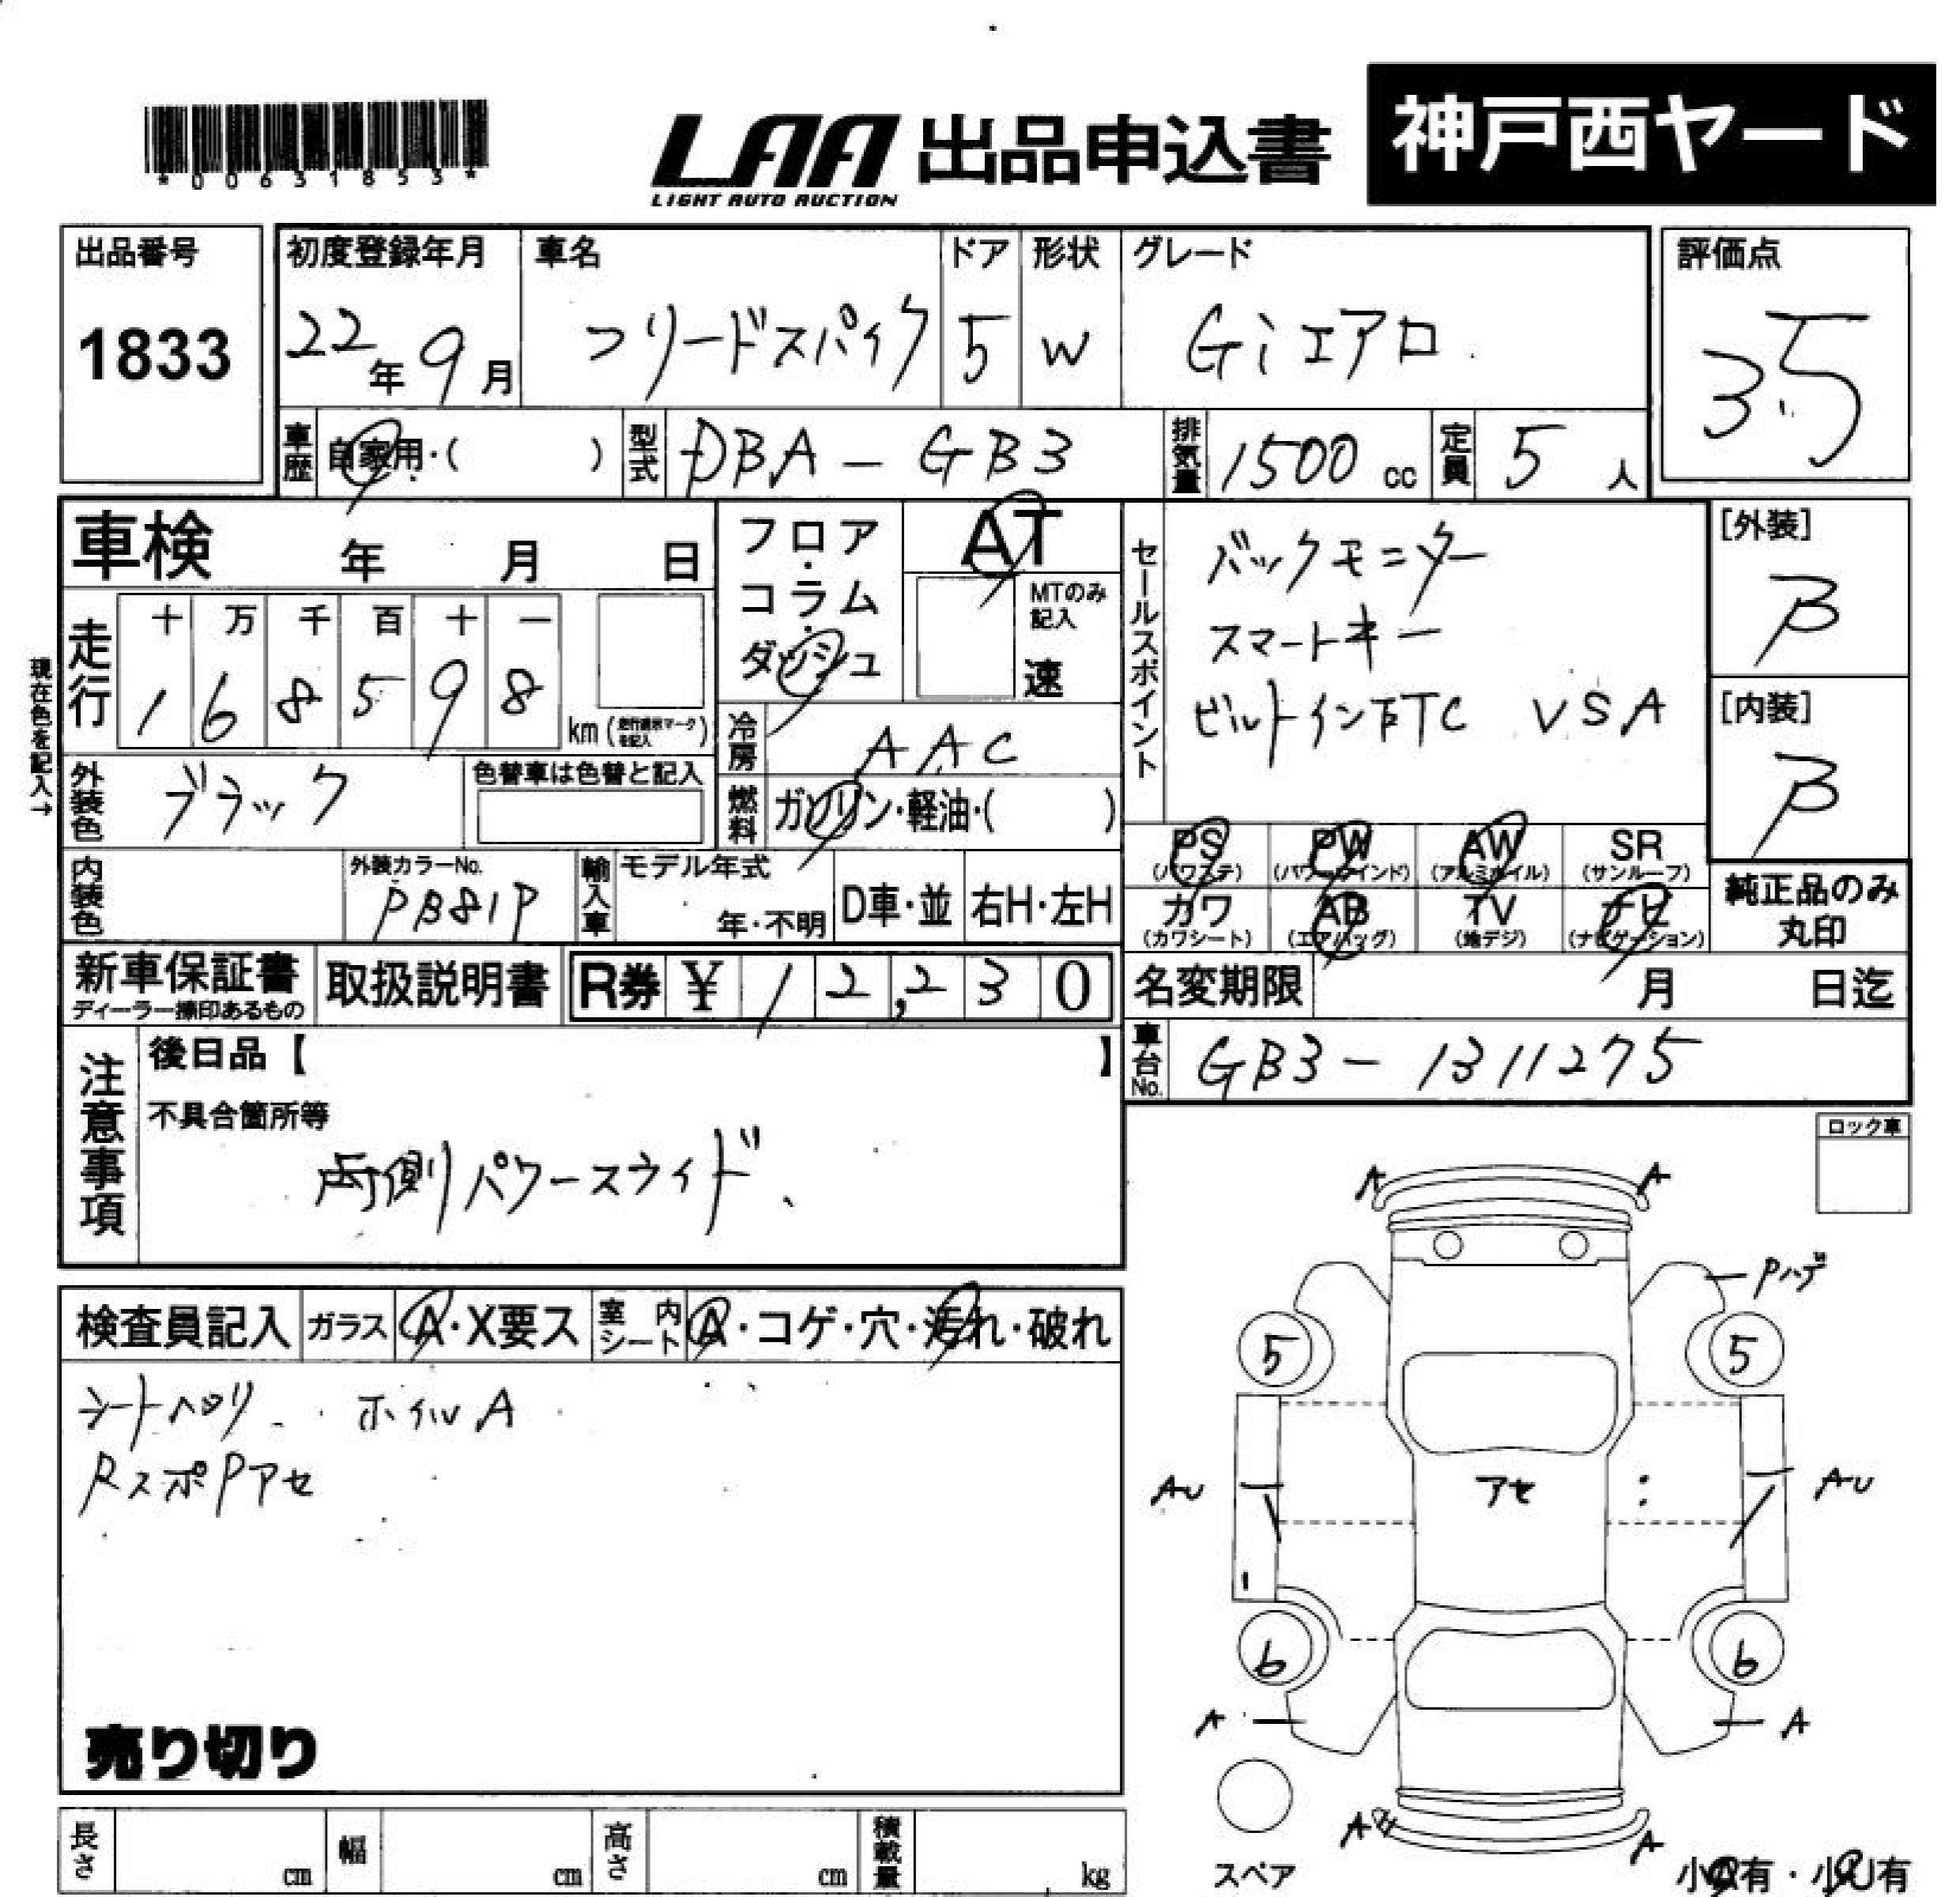 *00631853*
LAA 出品申込書 神戸西ヤード
LIGHT AUTO AUCTION
出品番号 初度登録年月 車名 ドア 形状 グレード 評価点
1833 22年9月 フリードスパイク 5 W Giエアロ 3.5
車歴 自家用・( ) 型式 DBA-GB3 排気量 1500cc 定員 5人
車検 年 月 日
フロア・コラム・ダッシュ
AT
MTのみ記入
速
セールスポイント
バックモニター
スマートキー
ビルトインETC VSA
[外装]
B
[内装]
B
現在色を記入→
走行 十 万 千 百 十 一
1 6 8 5 9 8 km(走行距離マークを記入)
冷房 AAC
外装色 ブラック 色替車は色替と記入
燃料 ガソリン・軽油・( )
PS(パワステ) PW(パワーウインド) AW(アルミホイル) SR(サンルーフ)
カワ(カワシート) AB(エアバッグ) TV(地デジ) ナビ(ナビゲーション)
純正品のみ丸印
内装色 外装カラーNo. PB81P 輸入車 モデル年式 年・不明 D車・並 右H・左H
新車保証書 ディーラー捺印あるもの 取扱説明書 R券 ¥ 12,230
名変期限 月 日迄
車台No. GB3-1311275
注意事項
後日品【 】
不具合箇所等
両側パワースライド、
ロック車
検査員記入 ガラス A・X要ス 室内シート A・コゲ・穴・汚れ・破れ
シートヘタリ ホイルA
RスポPアセ
売り切り
A A
Pハゲ
5 5
AU アセ AU
6 6
A A
A A
スペア
小A有・小U有
長さ cm 幅 cm 高さ cm 積載量 kg